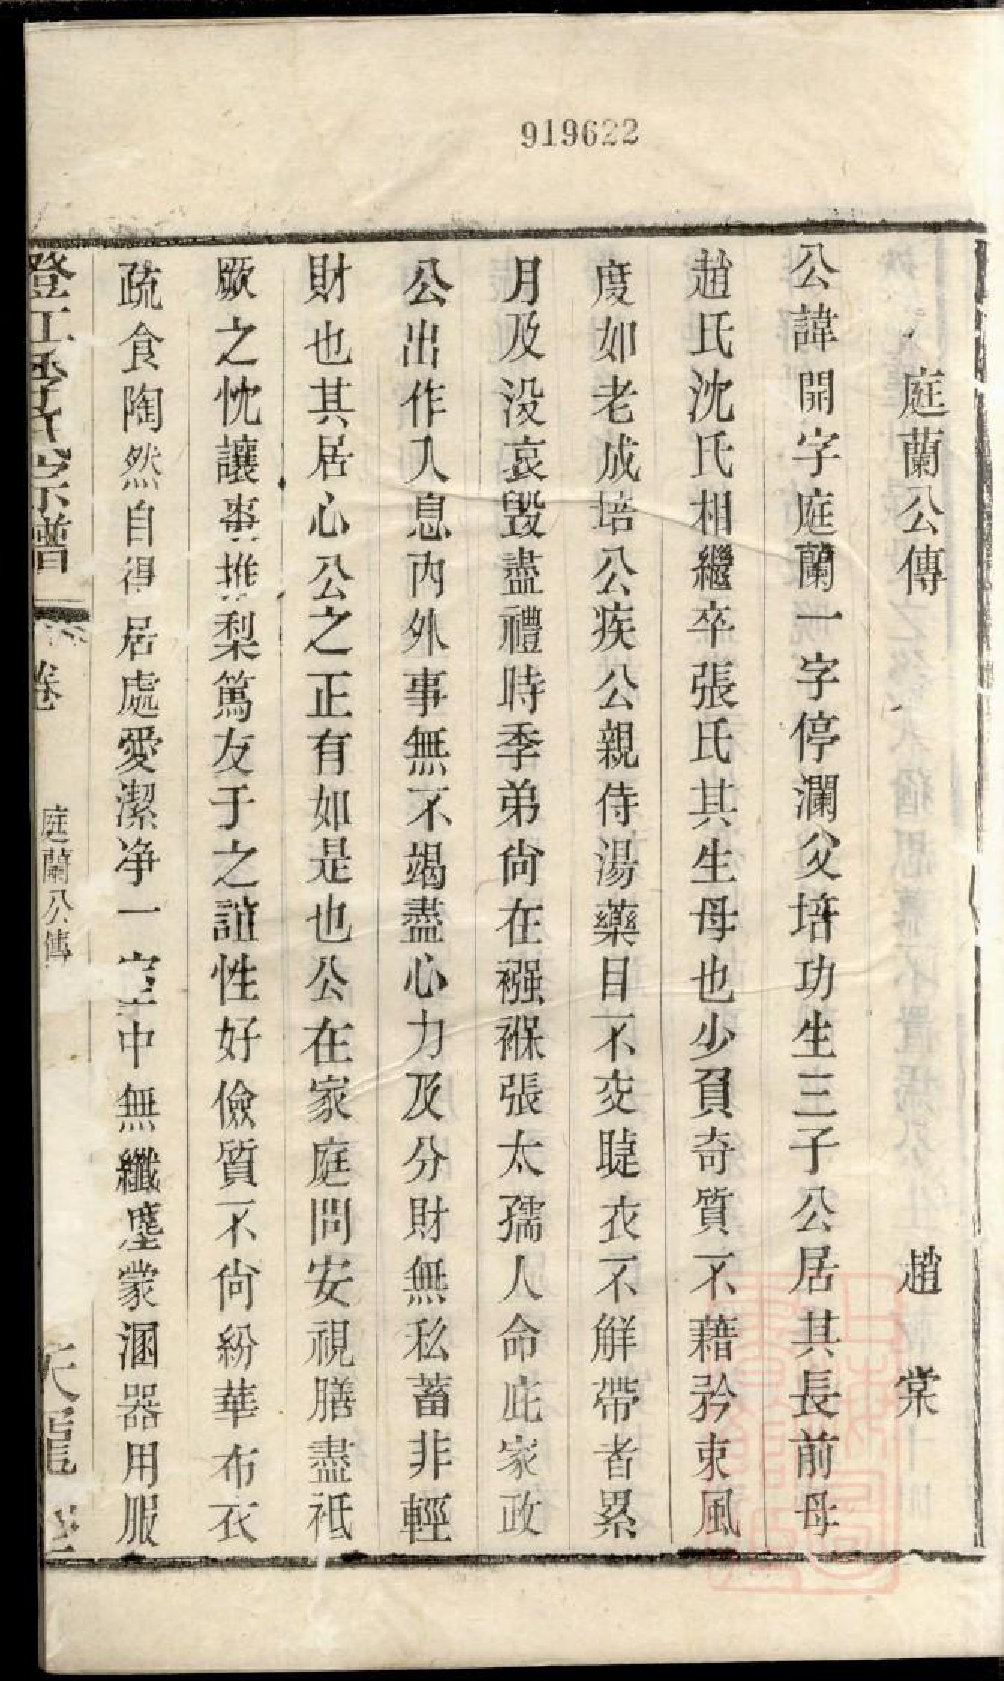 919622
庭蘭公傳
趙 棠
公諱開字庭蘭一字停瀾父培功生三子公居其長前母
趙氏沈氏相繼卒張氏其生母也少負奇質不藉矜束風
度如老成培公疾公親侍湯藥目不交睫衣不解帶者累
月及没哀毀盡禮時季弟尙在襁褓張太孺人命庇家政
公出作入息內外事無不竭盡心力及分財無私蓄非輕
財也其居心公之正有如是也公在家庭問安視膳盡祗
厥之忱讓棗推梨篤友于之誼性好儉質不尙紛華布衣
疏食陶然自得居處愛潔净一室中無纖塵蒙溷器用服
澄江季氏宗譜
卷
庭蘭公傳